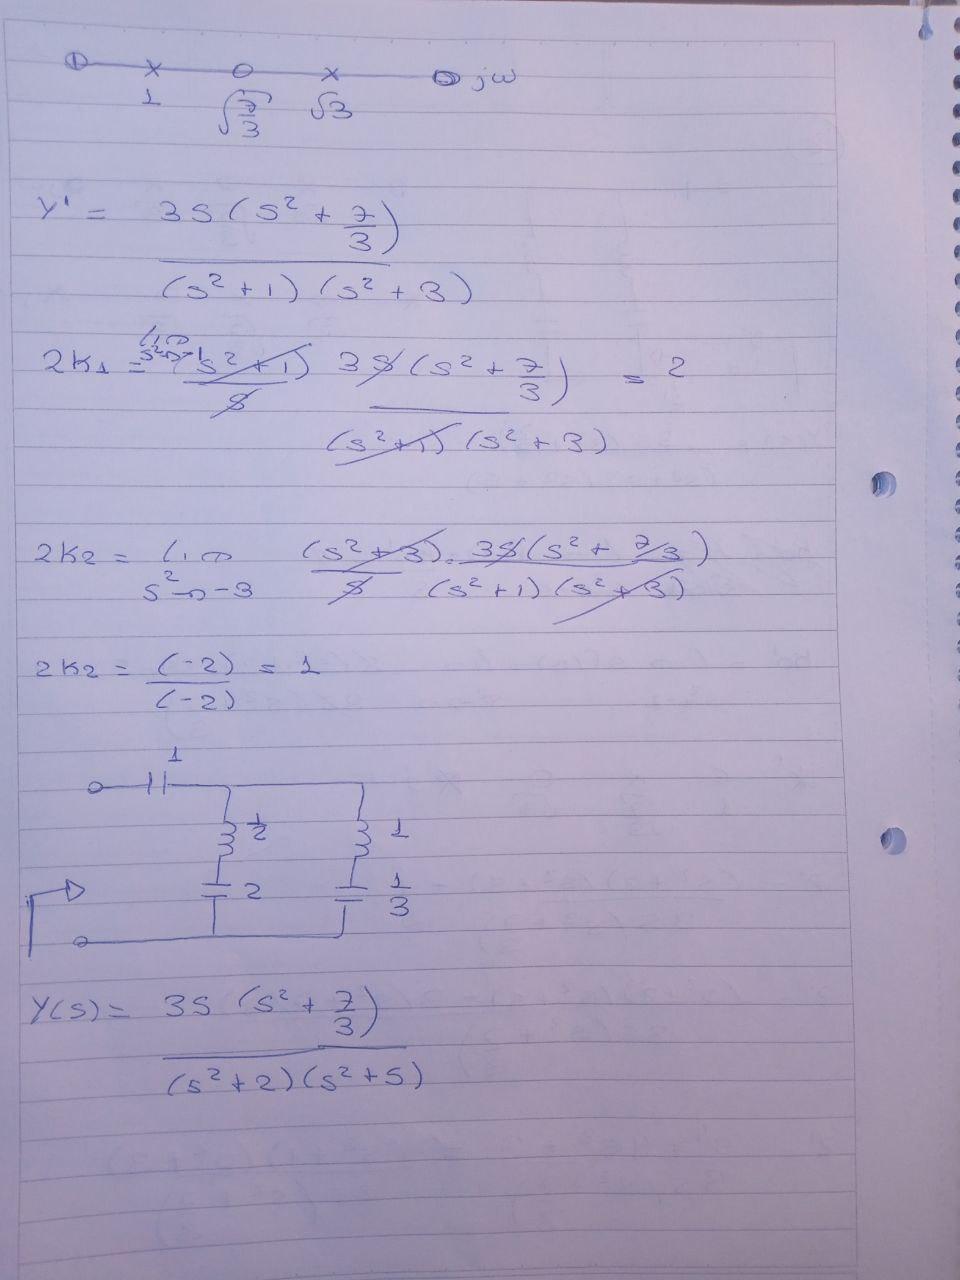 jω
1 √(7/3) √3
Y' = 3S(S² + 7/3) / (S²+1)(S²+3)
2K1 = lim S²→-1 (S²+1)/S 3S(S² + 7/3) / (S²+1)(S²+3) = 2
2K2 = lim S²→-3 (S²+3)/S . 3S(S² + 7/3) / (S²+1)(S²+3)
2K2 = (-2)/(-2) = 1
1
1/2 1
2 1/3
Y(S) = 3S(S² + 7/3) / (S²+2)(S²+5)